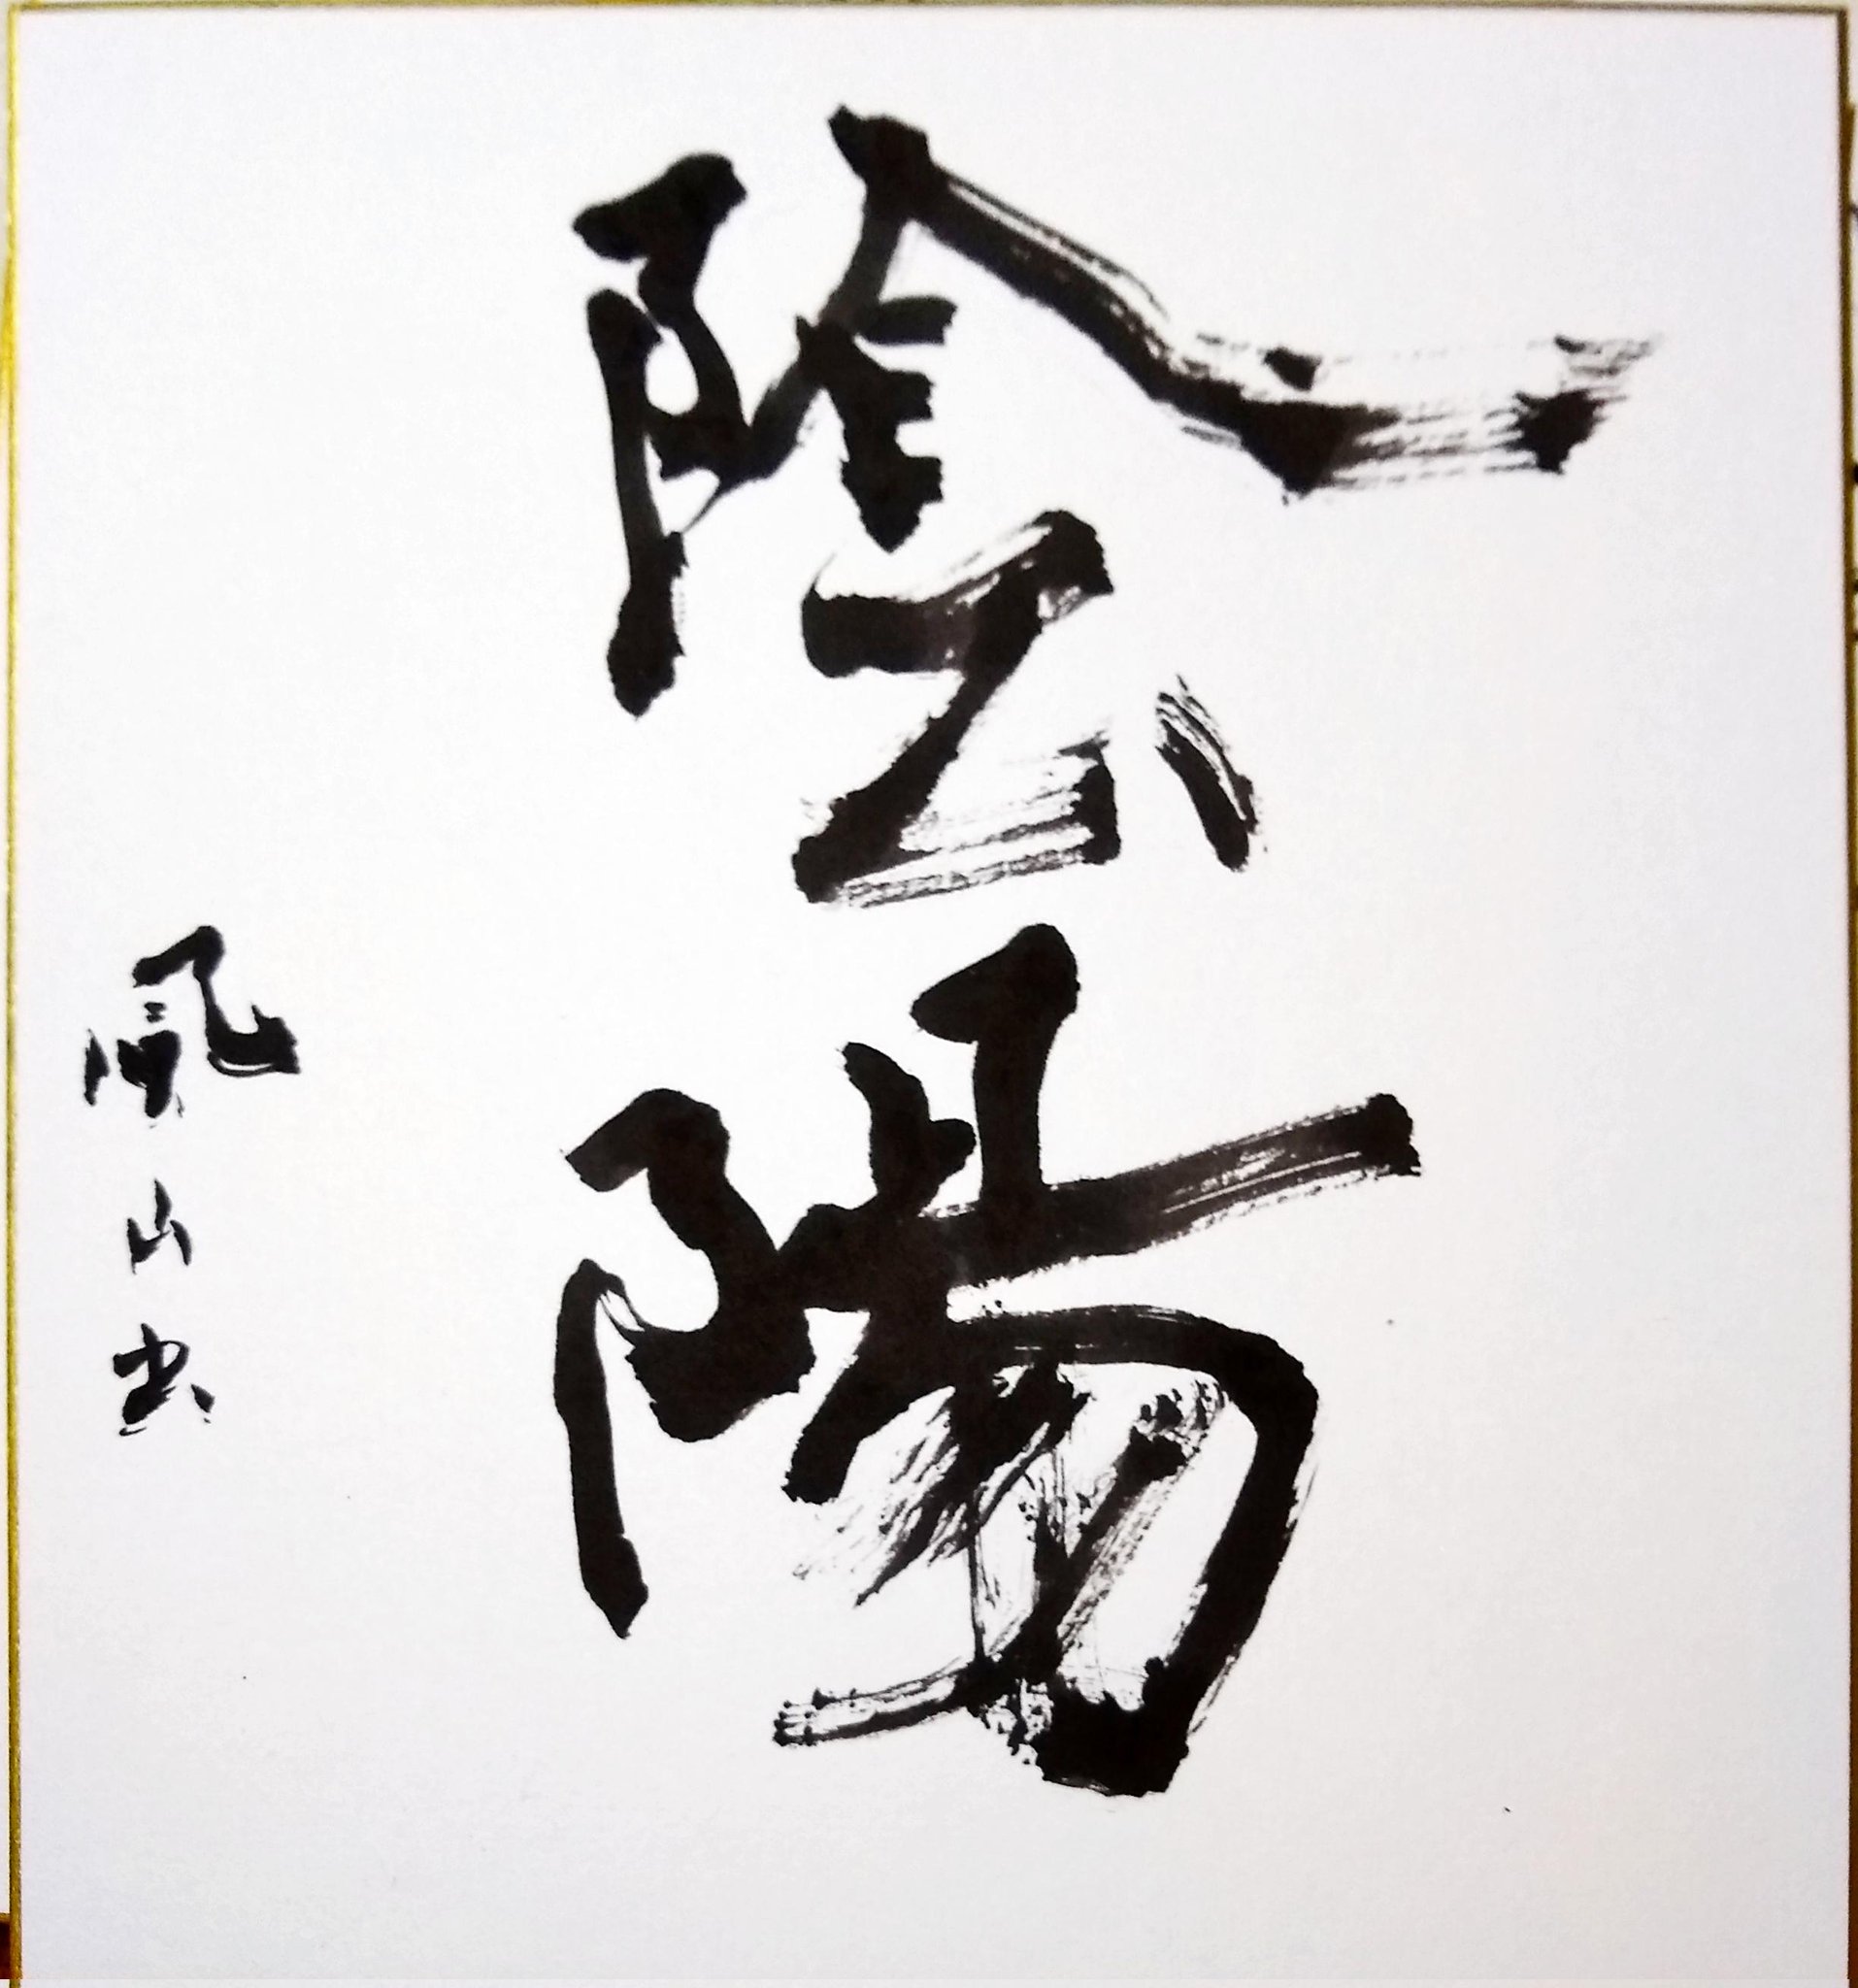 陰陽
風山書